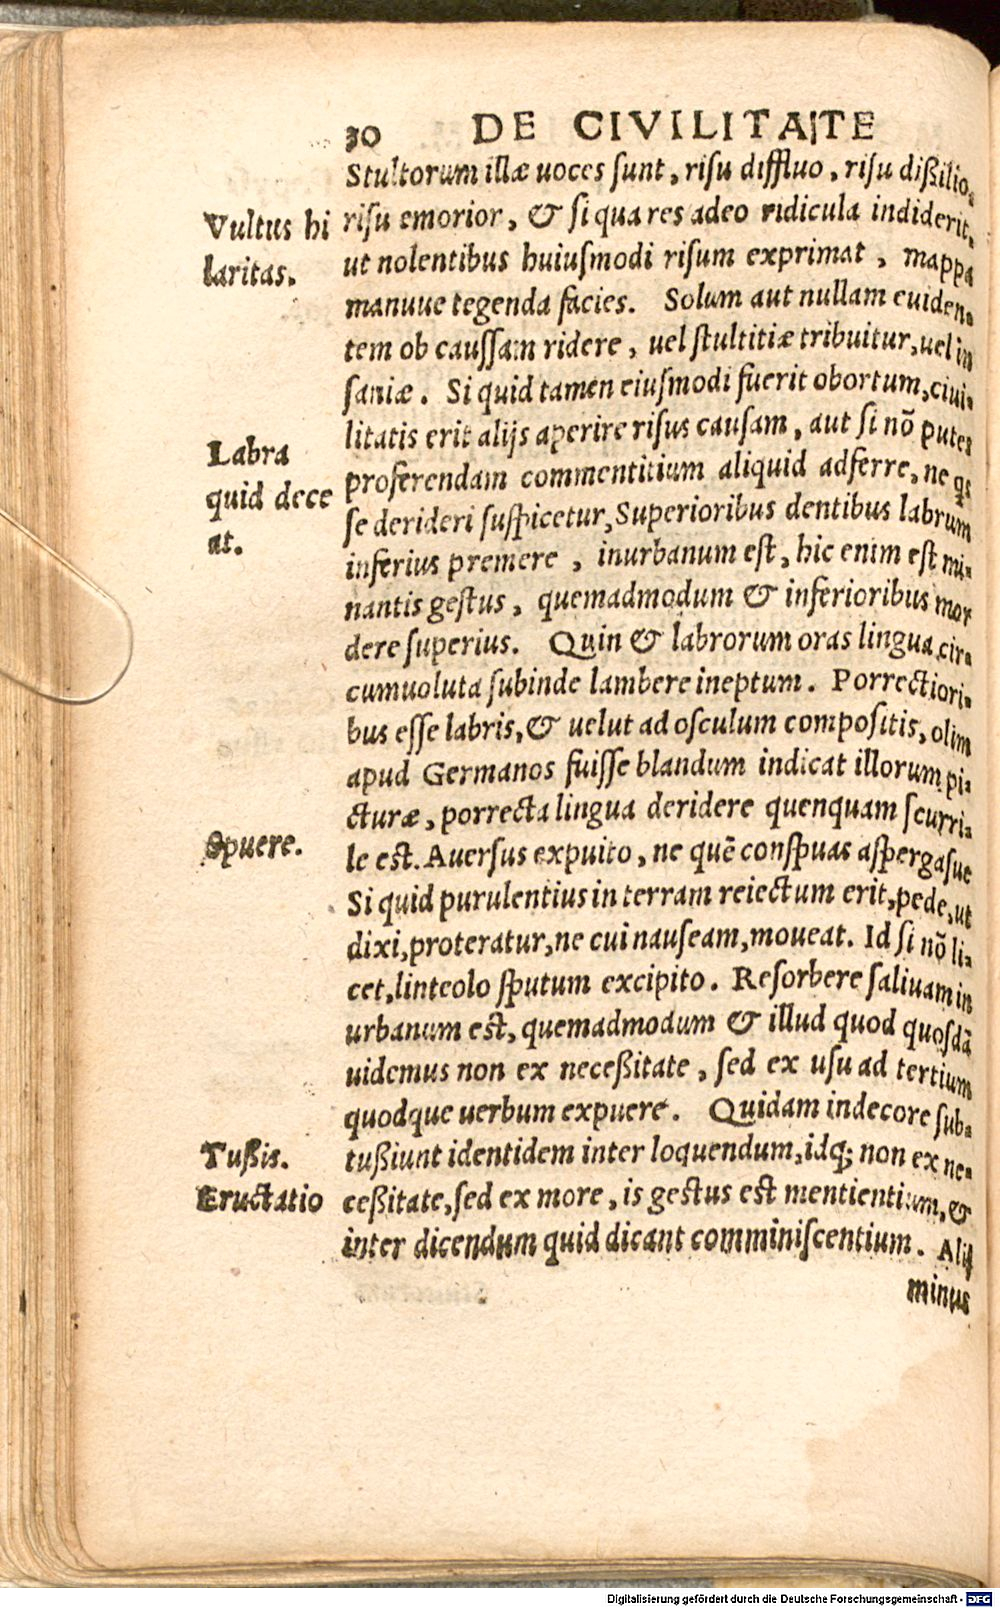 30 DE CIVILITATE
Stultorum illæ uoces ſunt, riſu diffluo, riſu dißilio,
riſu emorior, & ſi qua res adeo ridicula indiderit,
ut nolentibus huiuſmodi riſum exprimat, mappa
manuue tegenda facies. Solum aut nullam euiden-
tem ob cauſſam ridere, uel ſtultitiæ tribuitur, uel in
ſaniæ. Si quid tamen eiuſmodi fuerit obortum, ciui-
litatis erit alijs aperire riſus cauſam, aut ſi nõ putes
proferendam commentitium aliquid adferre, ne qs
ſe derideri ſuſpicetur, Superioribus dentibus labrum
inferius premere, inurbanum eſt, hic enim eſt mi-
nantis geſtus, quemadmodum & inferioribus mor
dere ſuperius. Quin & labrorum oras lingua cir-
cumuoluta ſubinde lambere ineptum. Porrectiori-
bus eſſe labris, & uelut ad oſculum compoſitis, olim
apud Germanos fuiſſe blandum indicat illorum pi-
cturæ, porrecta lingua deridere quenquam ſcurri-
le eſt. Auerſus expuito, ne quẽ conſpuas aſpergaſue
Si quid purulentius in terram reiectum erit, pede, ut
dixi, proteratur, ne cui nauſeam, moueat. Id ſi nõ li-
cet, linteolo ſputum excipito. Reſorbere ſaliuam in
urbanum eſt, quemadmodum & illud quod quoſdã
uidemus non ex neceßitate, ſed ex uſu ad tertium
quodque uerbum expuere. Quidam indecore ſub-
tußiunt identidem inter loquendum, idq; non ex ne-
ceßitate, ſed ex more, is geſtus eſt mentientium, &
inter dicendum quid dicant comminiſcentium. Alij
minus
Vultus hi
laritas.
Labra
quid dece
at.
Spuere.
Tußis.
Eructatio
Digitalisierung gefördert durch die Deutsche Forschungsgemeinschaft - DFG